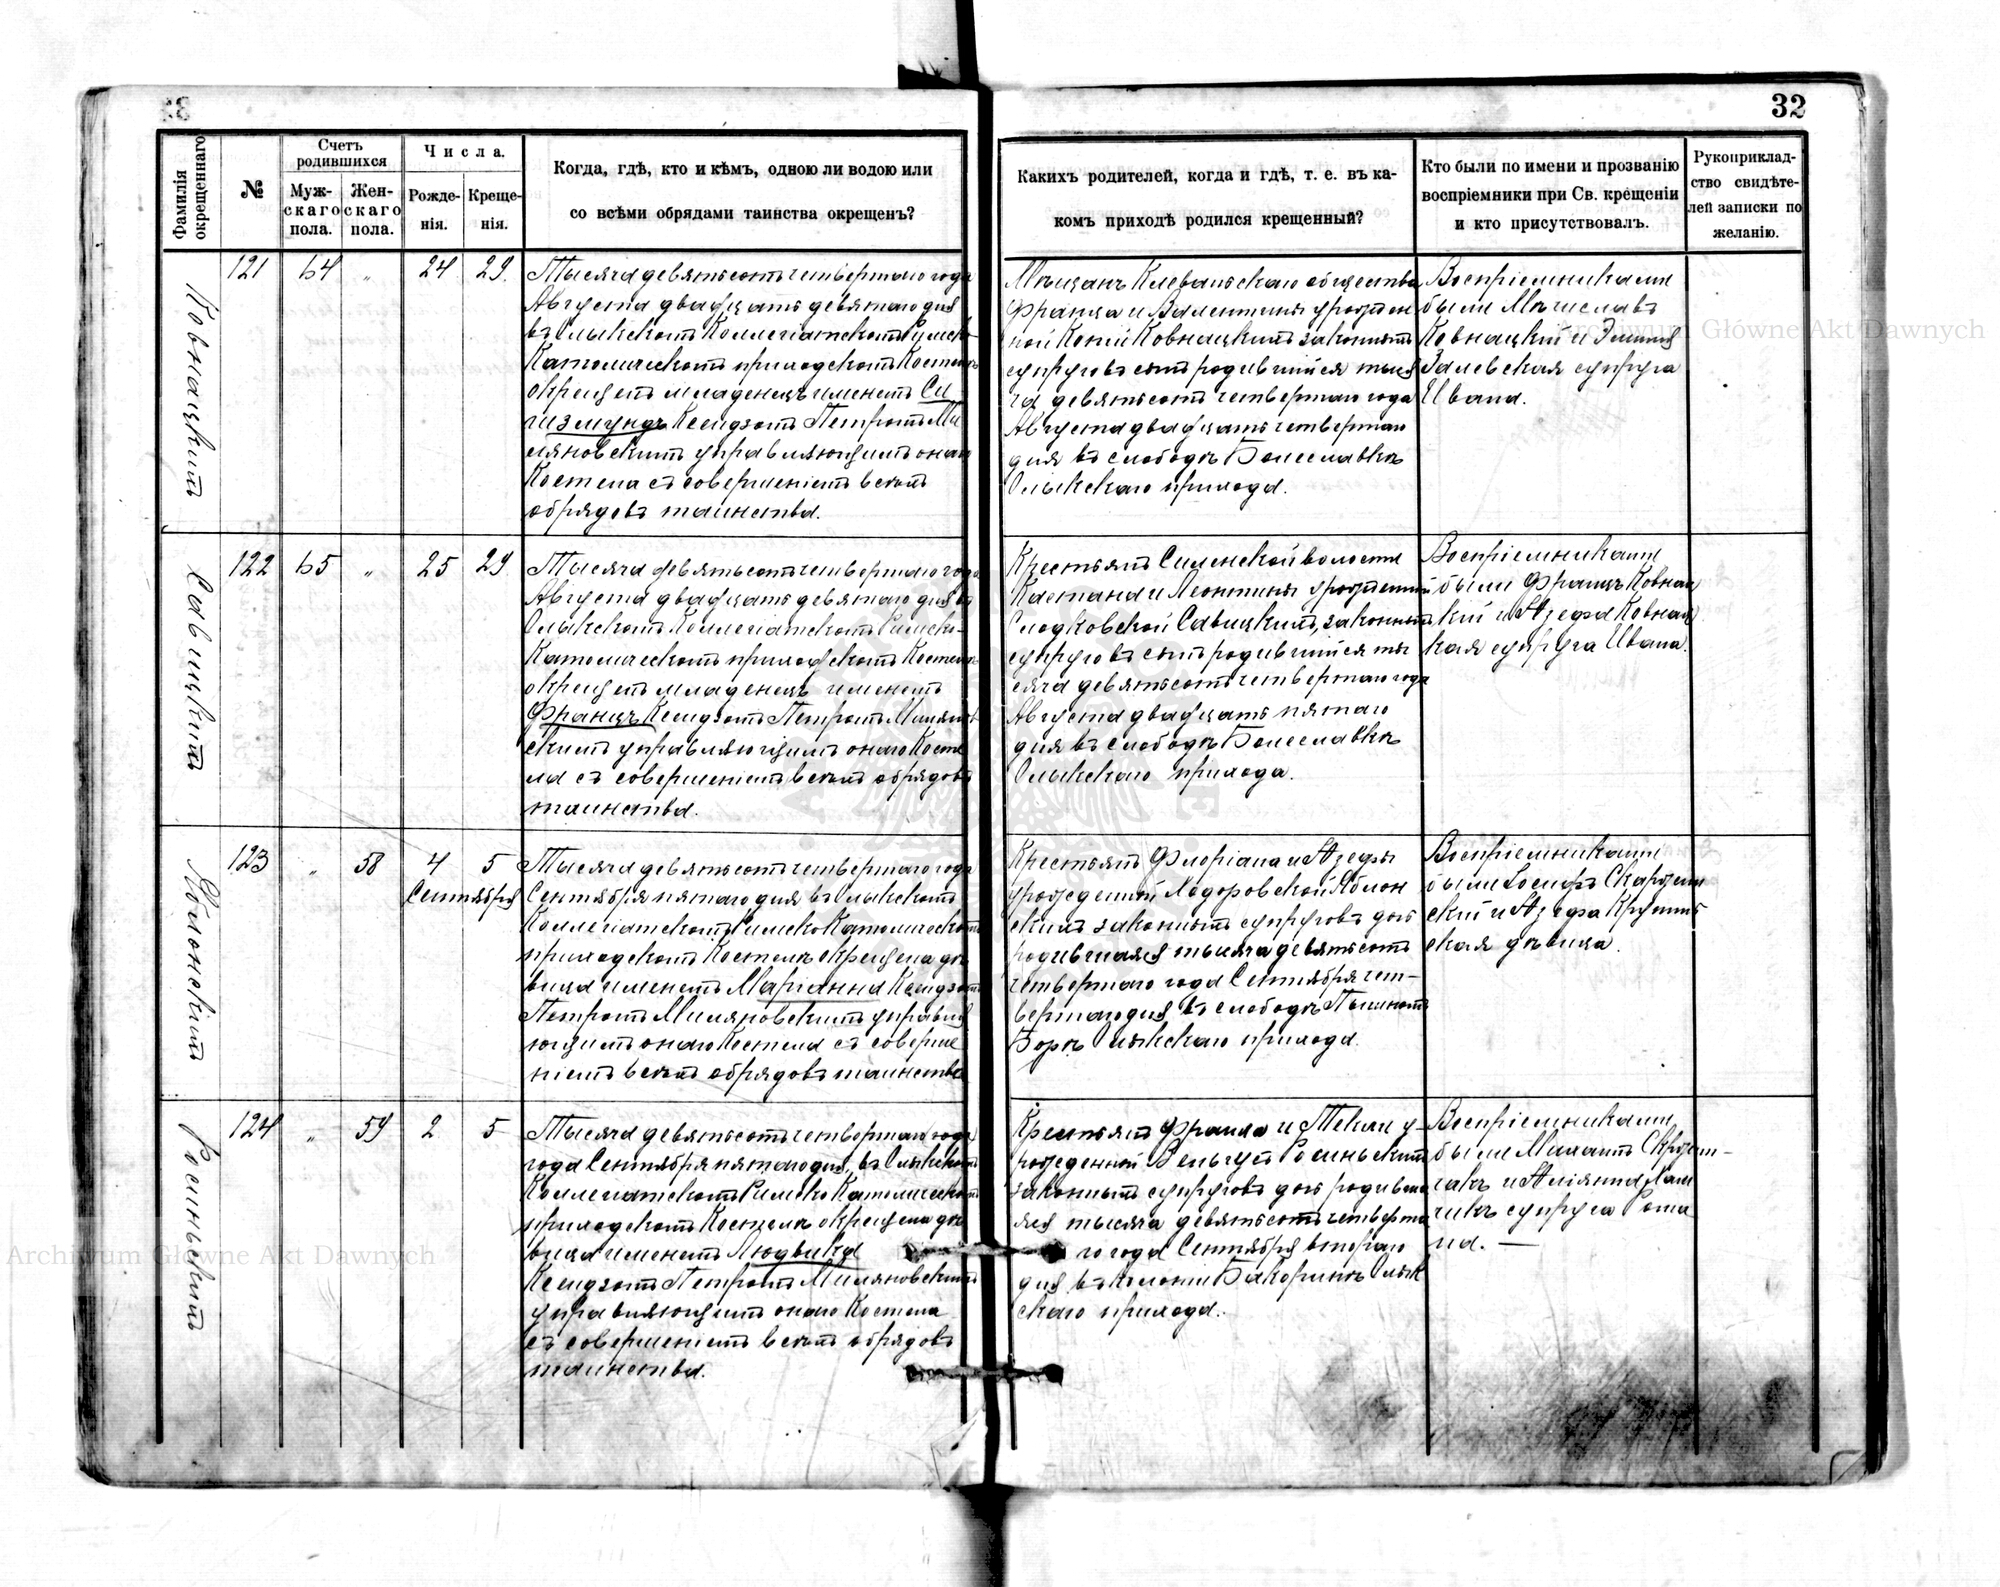 32
Фамилія окрещеннаго.
№
Счетъ родившихся
Муж-
скаго
пола.
Жен-
скаго
пола.
Числа.
Рожде-
нія.
Креще-
нія.
Когда, гдѣ, кто и кѣмъ, одною ли водою или
со всѣми обрядами таинства окрещенъ?
Какихъ родителей, когда и гдѣ, т. е. въ ка-
комъ приходѣ родился крещенный?
Кто были по имени и прозванію
воспріемники при Св. крещеніи
и кто присутствовалъ.
Рукоприклад-
ство свидѣте-
лей записки по
желанію.
Ковнацкій
121 64 „ 24 29
Тысяча девятьсотъ четвертаго года
Августа двадцать девятаго дня
въ Олыкскомъ Коллегіатскомъ Римско-
Католическомъ приходскомъ Костелѣ
окрещенъ младенецъ именемъ Си
гизмундъ Ксендзомъ Петромъ Ми
ляновскимъ управляющимъ онаго
Костела съ совершеніемъ всѣхъ
обрядовъ таинства.
Мѣщанъ Клеваньскаго общества
Франца и Валентины урожден
ной Ковнацкихъ законныхъ
супруговъ сынъ родившійся тыся
ча девятьсотъ четвертаго года
Августа двадцать четвертаго
дня въ слободѣ Болеславкѣ
Олыкскаго прихода.
Воспріемниками
были Мѣчиславъ
Ковнацкій и Эмилія
Залевская супруга
Ивана.
Савицкій
122 65 „ 25 29
Тысяча девятьсотъ четвертаго года
Августа двадцать девятаго дня въ
Олыкскомъ Коллегіатскомъ Римско-
Католическомъ приходскомъ Костелѣ
окрещенъ младенецъ именемъ
Францъ Ксендзомъ Петромъ Милянов
скимъ управляющимъ онаго Косте
ла съ совершеніемъ всѣхъ обрядовъ
таинства.
Крестьянъ Силенской волости
Каэтана и Леонтины урожденной
Слодковской Савицкихъ, законныхъ
супруговъ сынъ родившійся ты
сяча девятьсотъ четвертаго года
Августа двадцать пятаго
дня въ слободѣ Болеславкѣ
Олыкскаго прихода.
Воспріемниками
были Францъ Ковнац
кій и Юзефа Ковнац
кая супруга Ивана.
Яблонскій
123 „ 58 4 5
Сентября
Тысяча девятьсотъ четвертаго года
Сентября пятаго дня въ Олыкскомъ
Коллегіатскомъ Римско Католическомъ
приходскомъ Костелѣ окрещена дѣ
вица именемъ Маріанна Ксендзомъ
Петромъ Миляновскимъ управля
ющимъ онаго Костела съ соверше
ніемъ всѣхъ обрядовъ таинства
Крестьянъ Флоріана и Юзефы
урожденной Ходоровской Яблон
скихъ законныхъ супруговъ дочь
родившаяся тысяча девятьсотъ
четвертаго года Сентября чет-
вертаго дня въ слободѣ Пьяномъ
Борѣ Олыкскаго прихода.
Воспріемниками
были Іосифъ Скаржин
скій и Юзефа Крупин
ская дѣвица.
Росиньскій
124 „ 59 2 5
Тысяча девятьсотъ четвертаго года
года Сентября пятаго дня въ Олыкскомъ
Коллегіатскомъ Римско Католическомъ
приходскомъ Костелѣ окрещена дѣ
вица именемъ Людвика
Ксендзомъ Петромъ Миляновскимъ
управляющимъ онаго Костела
съ совершеніемъ всѣхъ обрядовъ
таинства.
Крестьянъ Франца и Теклі у-
рожденной Росиньскихъ
законныхъ супруговъ дочь родивша
яся тысяча девятьсотъ четверта
го года Сентября втораго
дня въ колоніи Олык
скаго прихода.
Воспріемниками
были
и супруга Рома
на. —
Archiwum Główne Akt Dawnych
Archiwum Główne Akt Dawnych